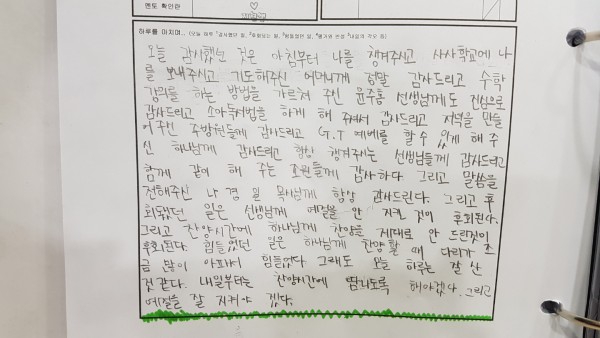 멘토 확인란
하루를 마치며..
오늘 감사했던 것은 아침부터 나를 챙겨주시고 사사학교에 나
를 보내주시고 기도해주신 어머니께 정말 감사드리고 수학
강의를 하는 방법을 가르쳐 주신 윤주동 선생님께도 진심으로
감사드리고 소아독서법을 하게 해 주셔서 감사드리고 저녁을 만들
어 주신 주방원들께 감사드리고 G.T 예배를 할 수 있게 해 주
신 하나님께 감사드리고 항상 챙겨주시는 선생님들께 감사드리고
함께 같이 해 주는 조원들께 감사하다 그리고 말씀을
전해주신 나 경 일 목사님께 항상 감사드린다. 그리고 후
회됐던 일은 선생님께 예절을 안 지킨 것이 후회된다.
그리고 찬양시간에 하나님께 찬양을 제대로 안 드린것이
후회된다 힘들었던 일은 하나님께 찬양할 때 다리가 조
금 많이 아파서 힘들었다 그래도 오늘 하루는 잘 산
것 같다. 내일부터는 찬양시간에 땀나도록 해야겠다. 그리고
예절을 잘 지켜야 겠다.